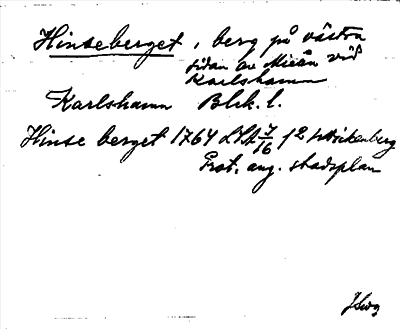 Hinseberget, berg på västra
sidan av Mieån vid
Karlshamn
Karlshamn Blek. l.
Hinse berget 1764 LSA 7/16 f 2 Wückenberg
Prot. ang. stadsplan